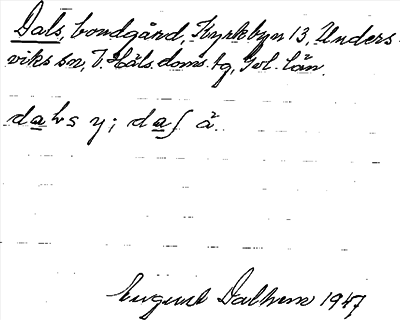 Dals, bondgård, Kyrkbyn 13, Unders-
viks sn, V. Häls. doms. tg, Gvl. län.
August Dalhem 1947